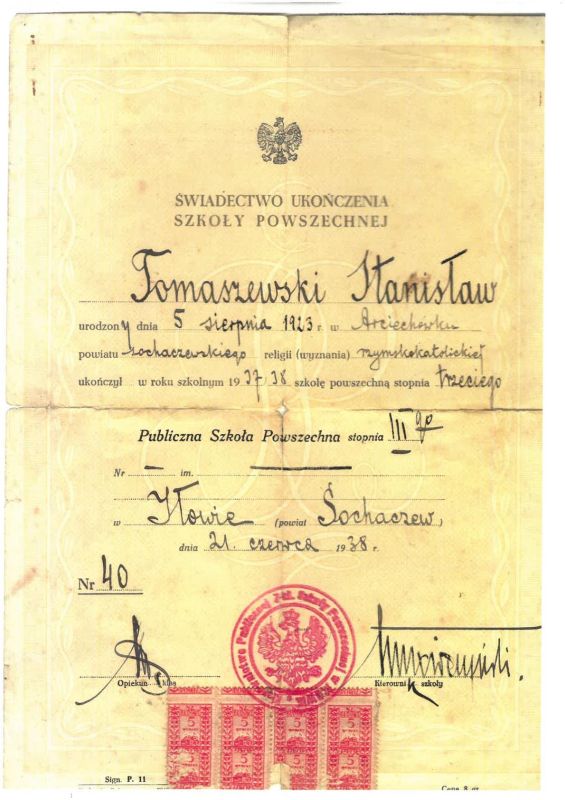 ŚWIADECTWO UKOŃCZENIA
SZKOŁY POWSZECHNEJ
Tomaszewski Stanisław
urodzony dnia 5 sierpnia 1923 r. w Arciechówku
powiatu sochaczewskiego religii (wyznania) rzymskokatolickiej
ukończył w roku szkolnym 1937/38 szkołę powszechną stopnia trzeciego
Publiczna Szkoła Powszechna stopnia III go
Nr — im. —
w Iłowie (powiat Sochaczew,
dnia 21 czerwca 1938 r.
Nr 40
Publicznej 7-kl. Szkoły Powszechnej w
Opiekun klasy
Kierownik szkoły
5 5 5 5
5 5 5 5
Sign. P. 11
Cena 8 gr